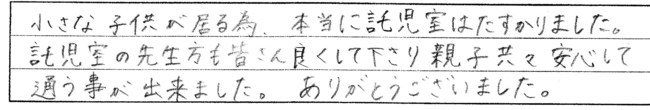 小さな子供が居る為、本当に託児室はたすかりました。
託児室の先生方も皆さん良くして下さり親子共々安心して
通う事が出来ました。 ありがとうございました。